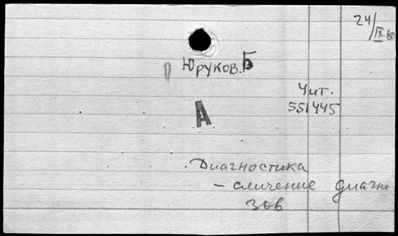 24/IX.60
Юруков. Б
Чит.
551445
А
Диагностика
- сличение диагно
зов